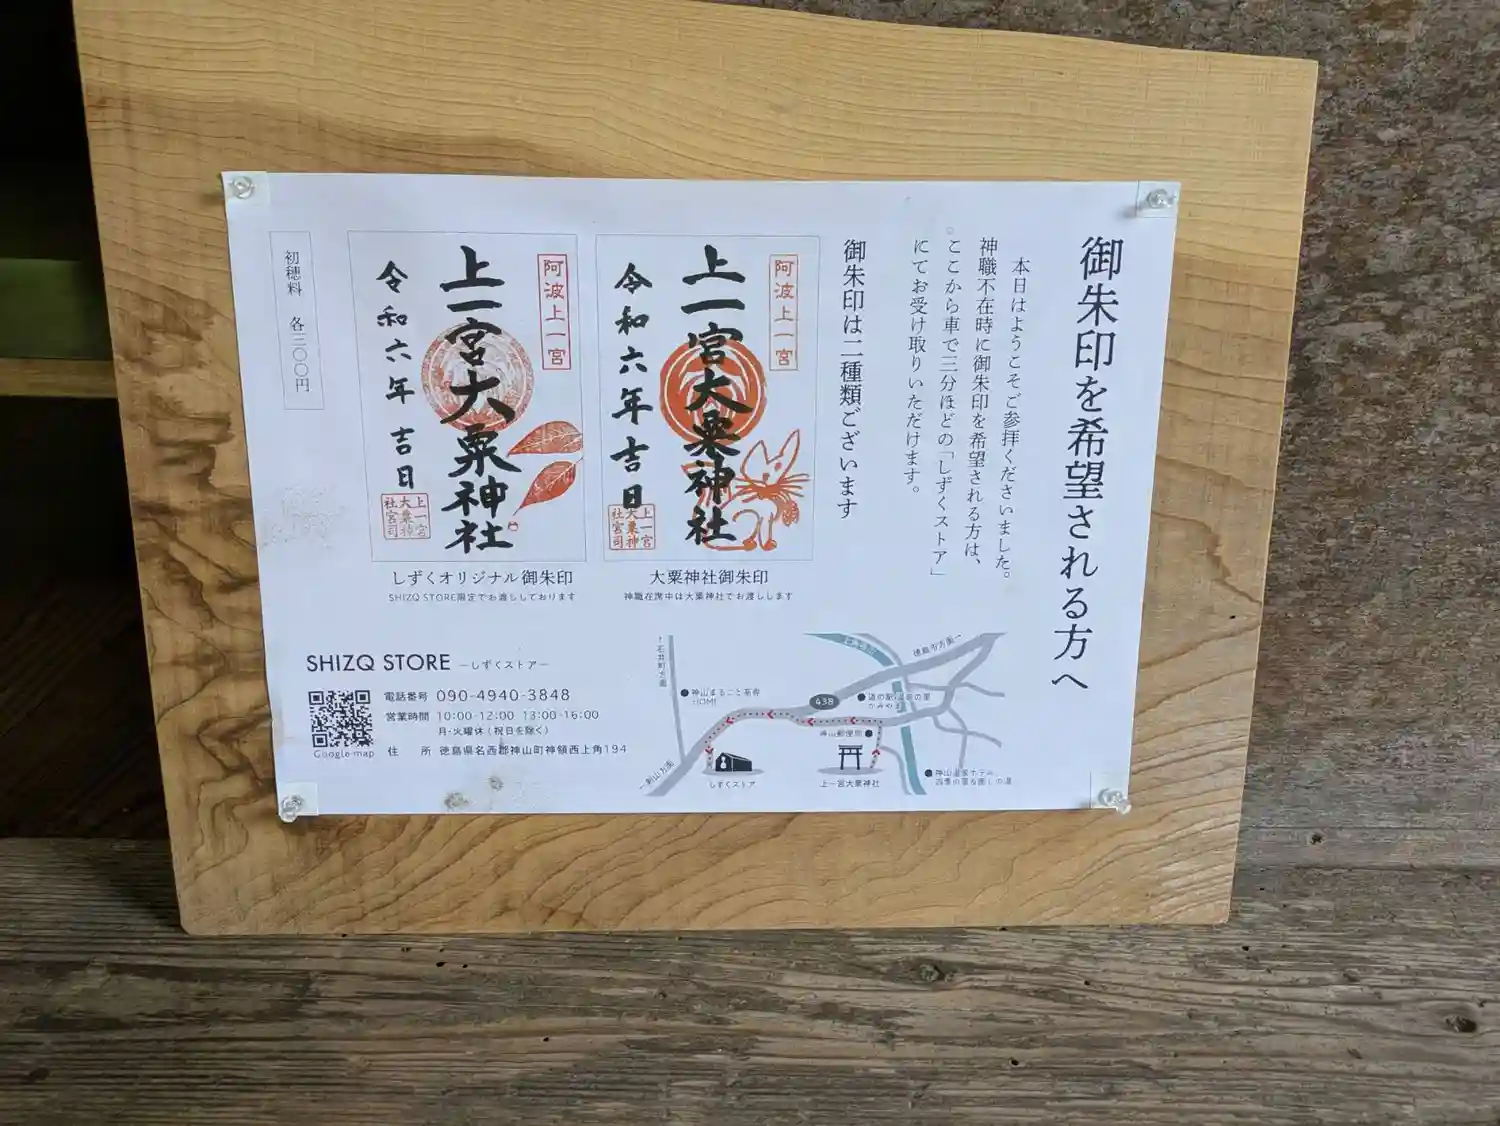 御朱印を希望される方へ
本日はようこそご参拝くださいました。
神職不在時に御朱印を希望される方は、
ここから車で三分ほどの「しずくストア」
にてお受け取りいただけます。
御朱印は二種類ございます
阿波上一宮
上一宮大粟神社
令和六年吉日
上一宮
大粟神
社宮司
大粟神社御朱印
神職在席中は大粟神社でお渡しします
阿波上一宮
上一宮大粟神社
令和六年吉日
上一宮
大粟神
社宮司
しずくオリジナル御朱印
SHIZQ STORE限定でお渡ししております
初穂料 各三〇〇円
SHIZQ STORE —しずくストア—
Google map
電話番号 090-4940-3848
営業時間 10:00-12:00 13:00-16:00
月・火曜休(祝日を除く)
住 所 徳島県名西郡神山町神領西上角194
↑石井町方面
神山まるごと高専
徳島市方面→
438
道の駅 温泉の里
かみやま
神山郵便局
しずくストア
上一宮大粟神社
神山温泉ホテル
←剣山方面